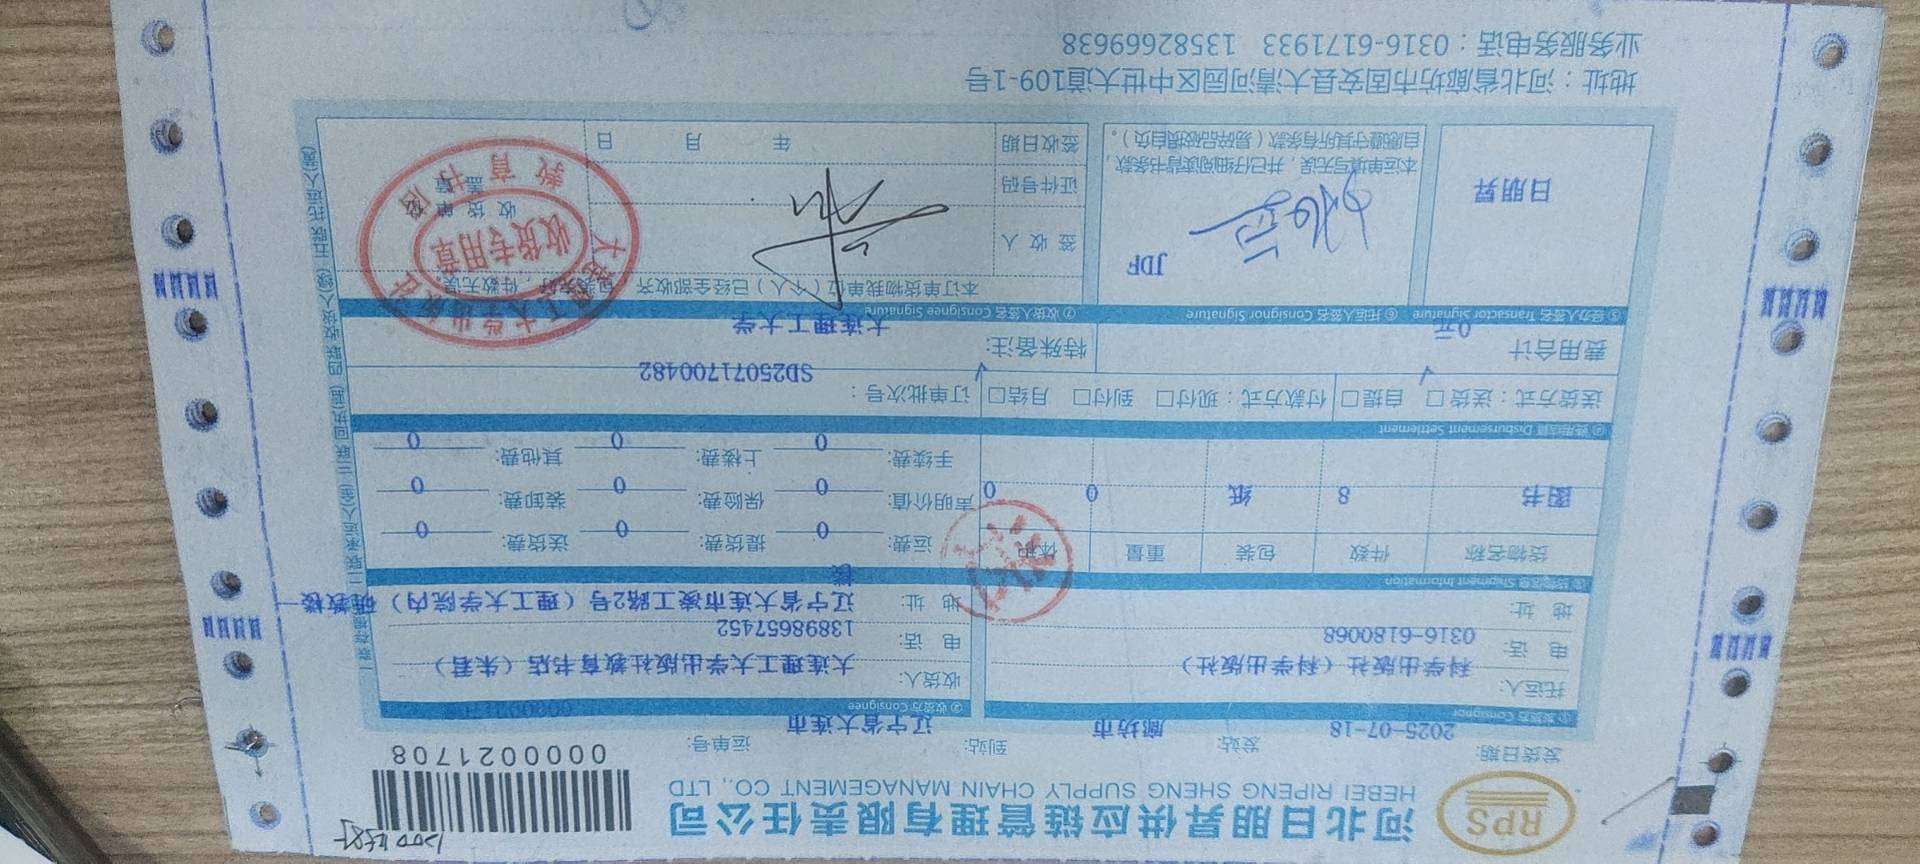 RPS
河北日朋昇供应链管理有限责任公司
HEBEI RIPENG SHENG SUPPLY CHAIN MANAGEMENT CO., LTD
0000021708
发货日期: 2025-07-18 发站: 廊坊市 到站: 辽宁省大连市 运单号:
① 发货方 Consignor
② 收货方 Consignee
托运人: 科学出版社（科学出版社）
电 话: 0316-6180068
地 址:
收货人: 大连理工大学出版社教育书店（朱君）
电 话: 13898657452
地 址: 辽宁省大连市凌工路2号（理工大学院内）
楼
③ 货物信息 Shipment Information
货物名称 件数 包装 重量 体积
图书 8 纸 0 0
运费: 0 提货费: 0 送货费: 0
声明价值: 0 保险费: 0 装卸费: 0
手续费: 0 上楼费: 0 其他费: 0
④ 费用结算 Disbursement Settlement
送货方式：送货□ 自提□ 付款方式：现付□ 到付□ 月结□ 订单批次号：
SD25071700482
费用合计 0元 特殊备注:
大连理工大学
⑤ 经办人签名 Transactor Signature ⑥ 托运人签名 Consignor Signature ⑦ 收货人签名 Consignee Signature
日朋昇
JDF
本运单填写无误，并已仔细阅读背书条款，
自愿遵守其所有条款（易碎品破损自负）。
本订单货物我单位（个人）已经全部收齐，件数无误
签 收 人
证件号码
签收日期 年 月 日
收货单位
盖章
大连理工大学出版社
教育书店
收货专用章
地址：河北省廊坊市固安县大清河园区中世大道109-1号
业务服务电话：0316-6171933 13582669638